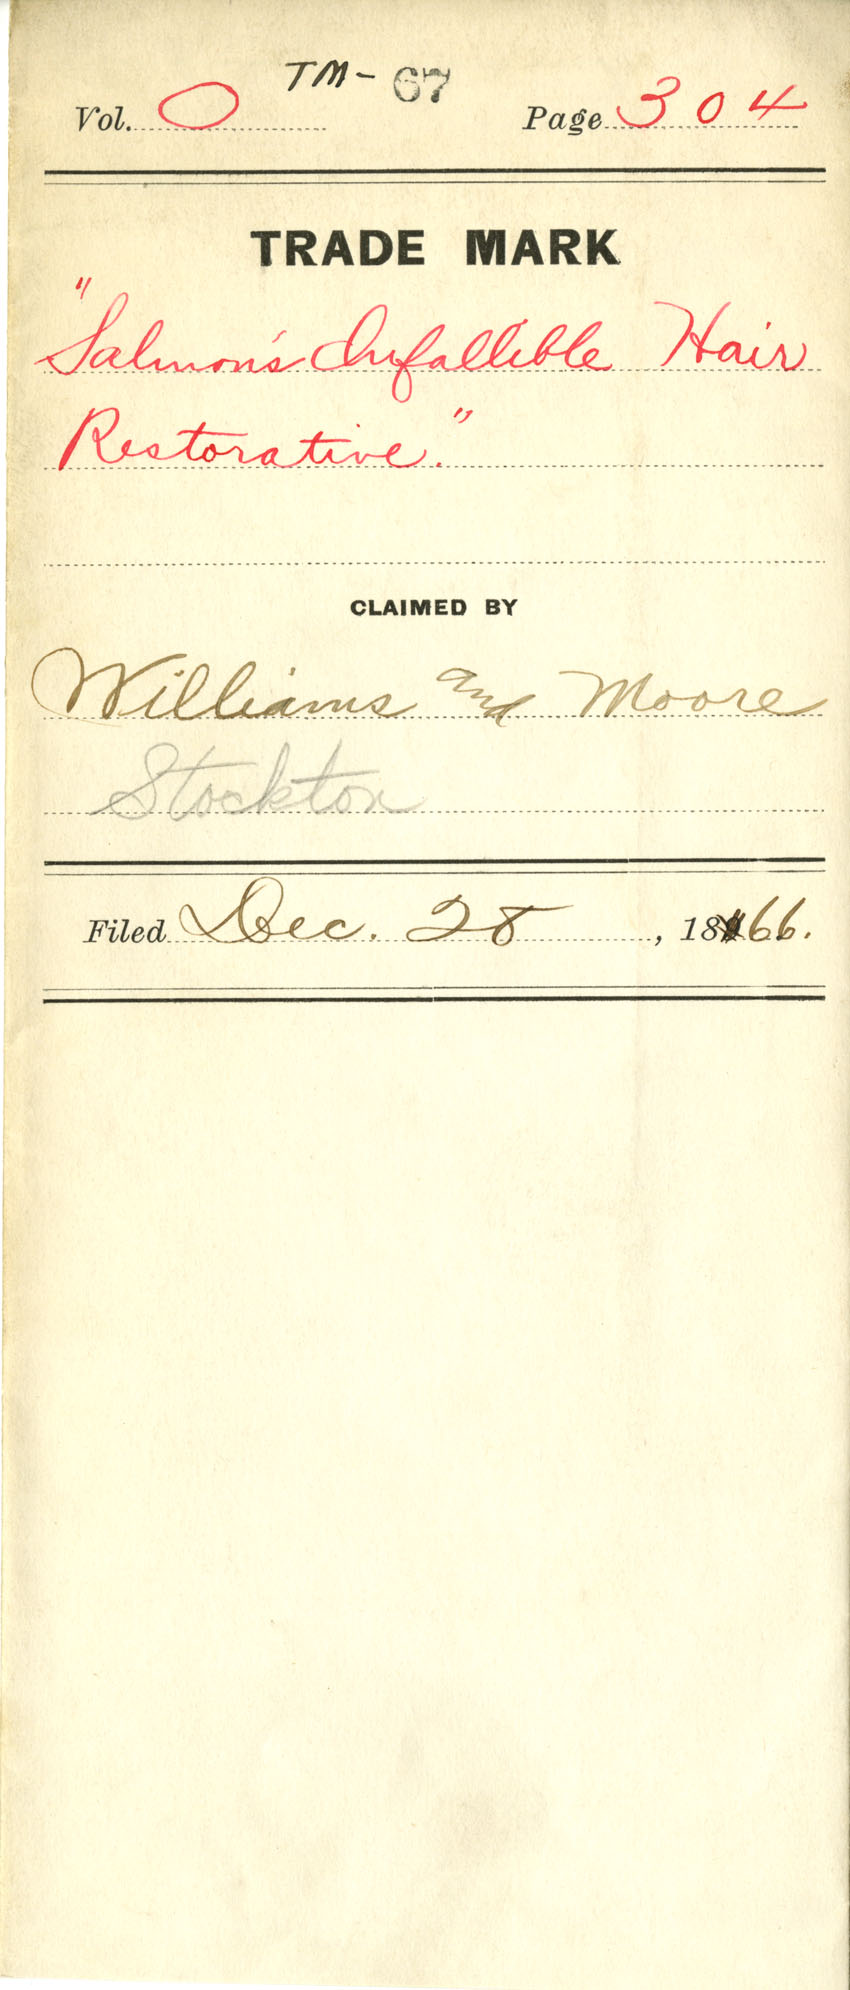 TM- 67
Vol. O Page 304
TRADE MARK
"Salmon's Infallible Hair
Restorative."
CLAIMED BY
Williams and Moore
Stockton
Filed Dec. 28, 1866.